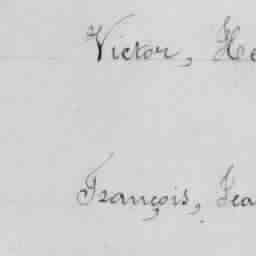 Victor, He
François, Jea